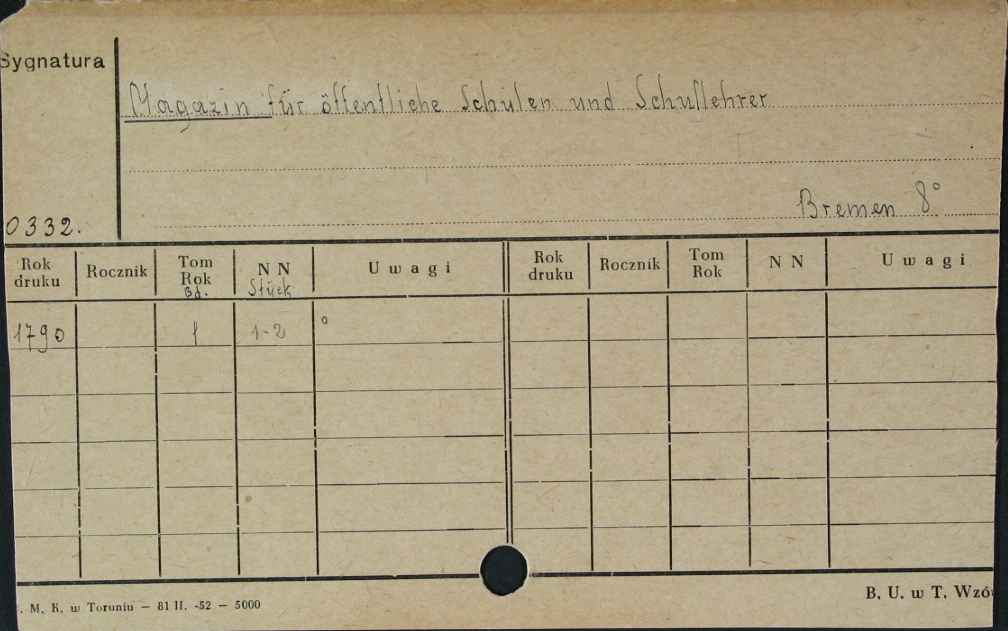 Sygnatura
Magazin für öffentliche Schulen und Schullehrer
Bremen 8°
0332.
Rok druku Rocznik Tom Rok Bd. N N Stück Uwagi Rok druku Rocznik Tom Rok N N Uwagi
1790 1 1-2 °
. M. K. w Toruniu — 81 II. -52 — 5000
B. U. w T. Wzó